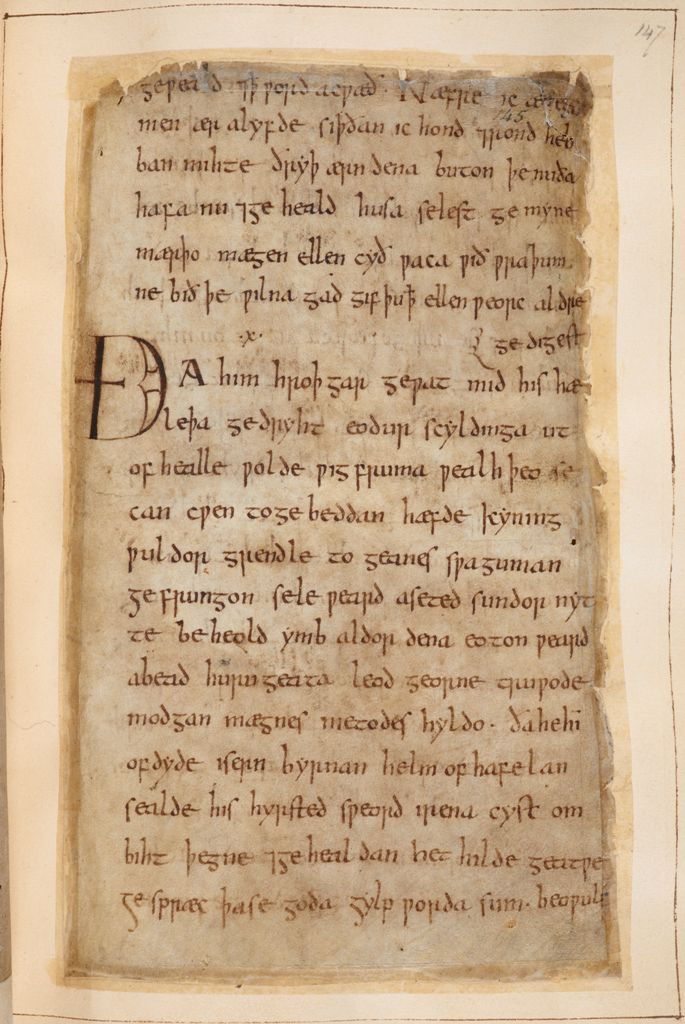 147
geƿeald ⁊ þꝥ ƿord acƿæð. Næfre ic ænegū
145
men ær alyfde siþðan ic hond ⁊ rond heb
ban mihte ðryþ ærn dena buton þe nuða
hafa nu ⁊ ge heald husa selest ge myne
mærþo mægen ellen cyð ƿaca ƿið ƿraþum
ne bið þe ƿilna gad gif þu ꝥ ellen ƿeorc aldre
·x· ge digest
ÐA him hroþgar geƿat mid his hæ
leþa gedryht eodur scyldinga ut
of healle ƿolde ƿigfruma ƿealhþeo se
can cƿen to ge beddan hæfde kyning
ƿuldor grendle to geanes sƿa guman
ge frungon sele ƿeard aseted sundor nyt
te be heold ymb aldor dena eoton ƿeard
abead huru geata leod georne truƿode
modgan mægnes metodes hyldo. ða he hī
of dyde isern byrnan helm of hafelan
sealde his hyrsted sƿeord irena cyst om
biht þegne ⁊ ge heal dan het hilde geatƿe
ge spræc þa se goda gylp ƿorda sum. beoƿulf